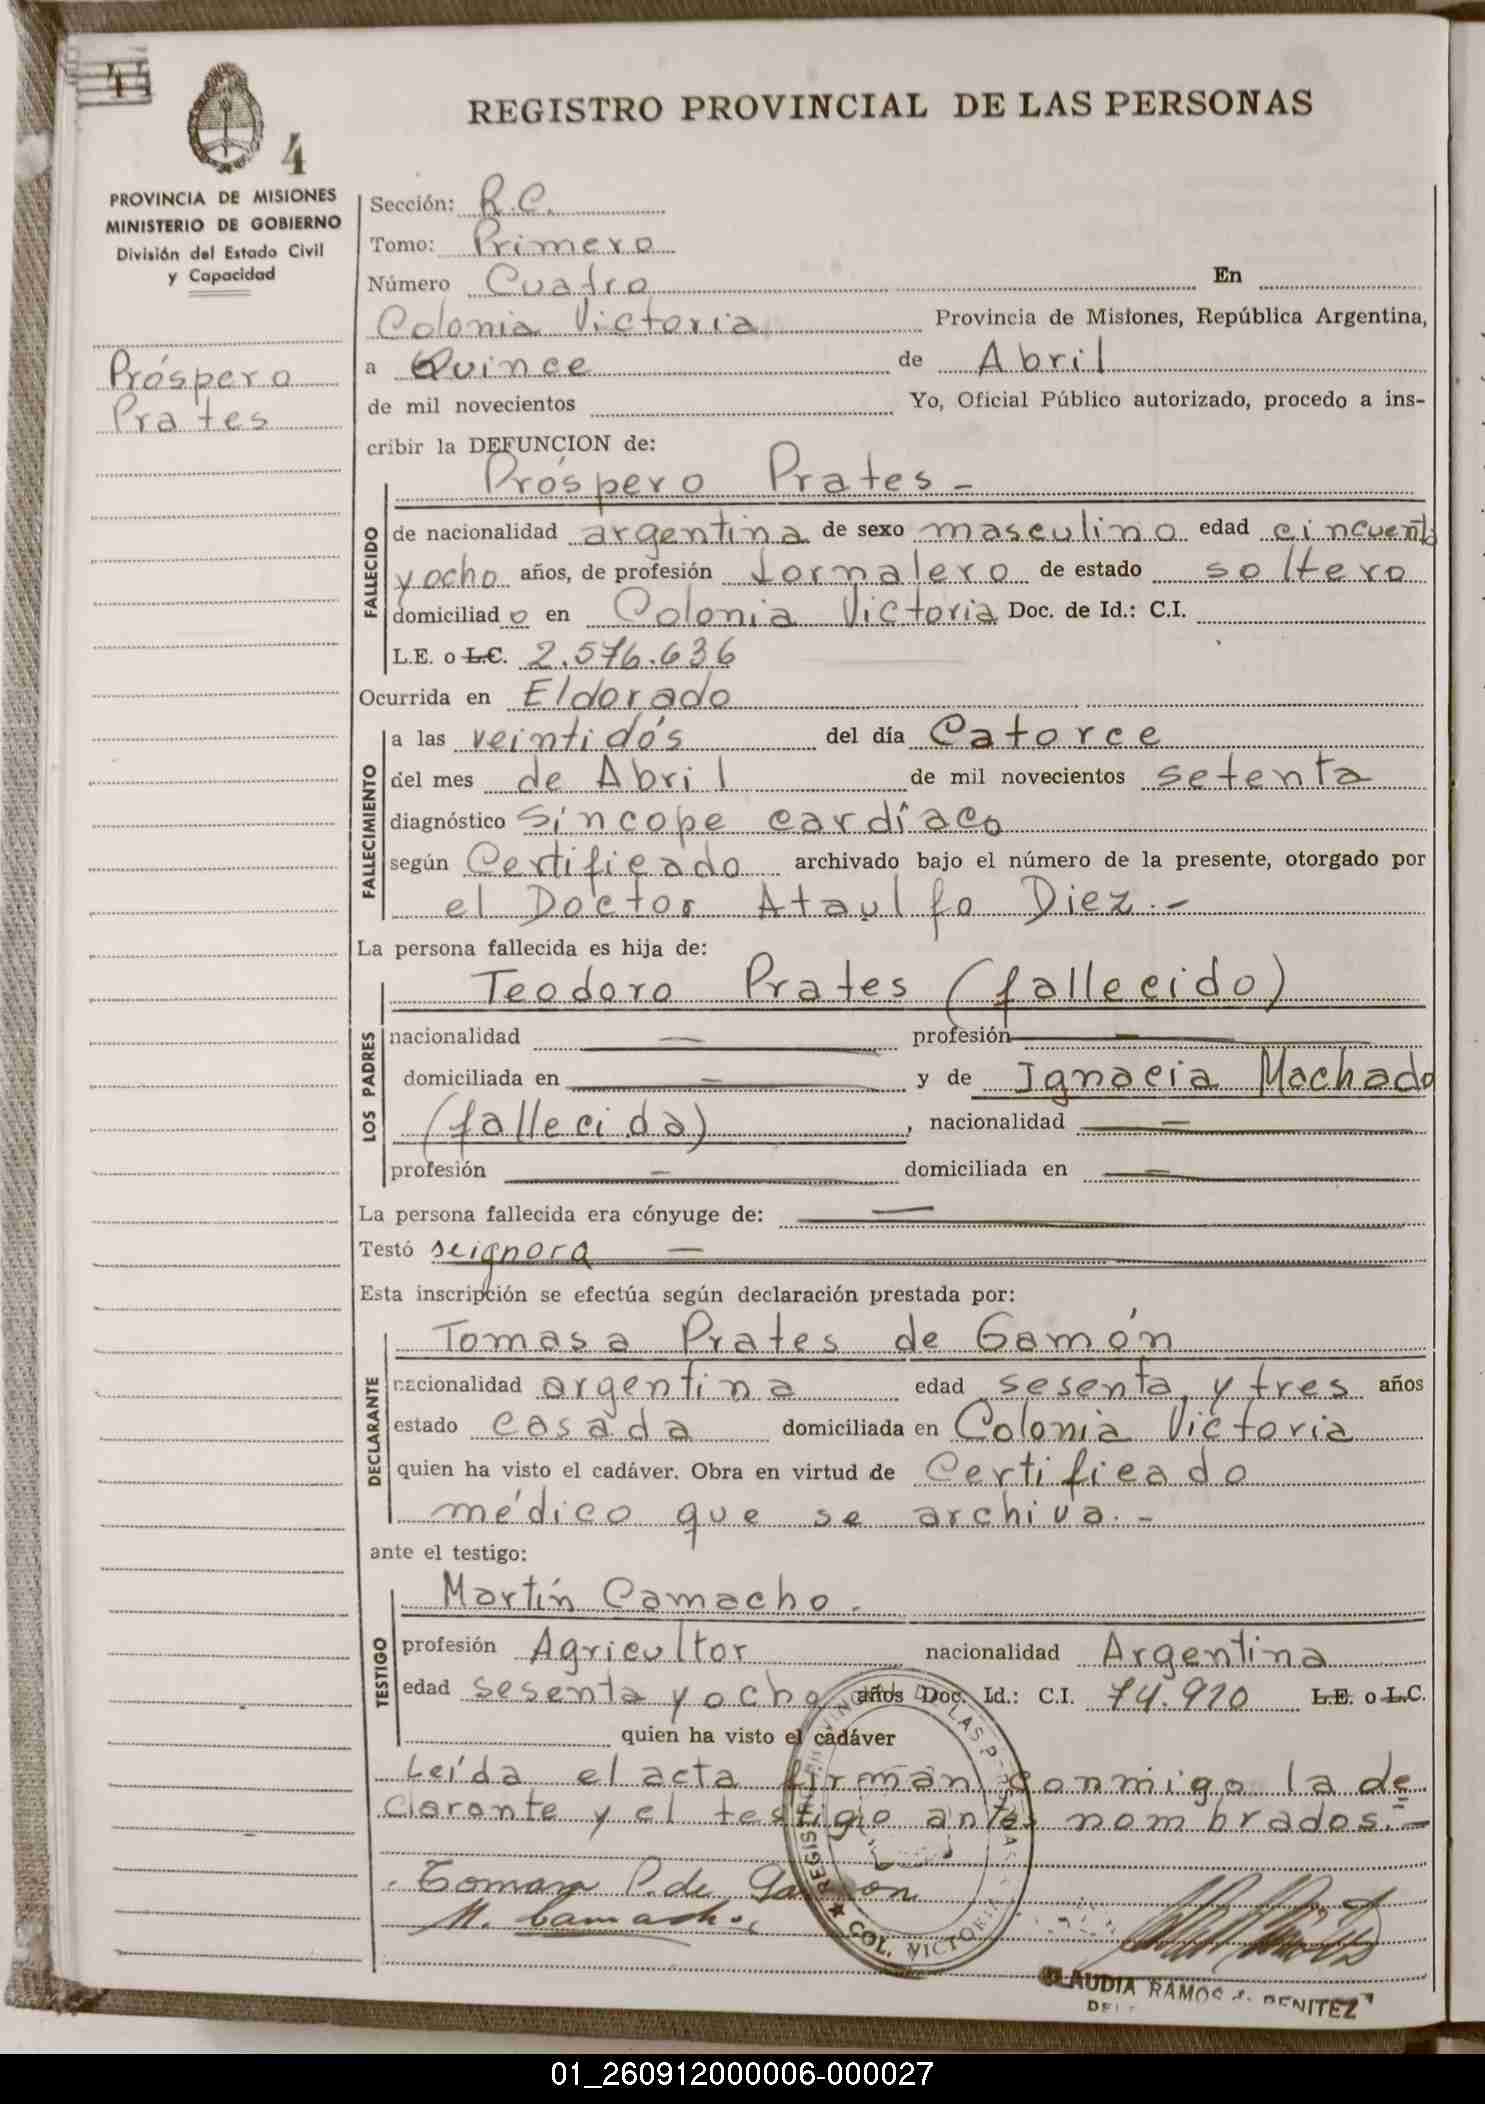 44
4
REGISTRO PROVINCIAL DE LAS PERSONAS
PROVINCIA DE MISIONES
MINISTERIO DE GOBIERNO
División del Estado Civil
y Capacidad
Próspero
Prates
Sección: R.C.
Tomo: Primero
Número Cuatro En
Colonia Victoria Provincia de Misiones, República Argentina,
a Quince de Abril
de mil novecientos Yo, Oficial Público autorizado, procedo a ins-
cribir la DEFUNCION de:
Próspero Prates -
FALLECIDO
de nacionalidad argentina de sexo masculino edad cincuenta
y ocho años, de profesión Jornalero de estado soltero
domiciliado en Colonia Victoria Doc. de Id.: C.I.
L.E. o L.C. 2.576.636
Ocurrida en Eldorado
FALLECIMIENTO
a las veintidós del día Catorce
del mes de Abril de mil novecientos setenta
diagnóstico Síncope cardíaco
según Certificado archivado bajo el número de la presente, otorgado por
el Doctor Ataulfo Diez.-
La persona fallecida es hija de:
LOS PADRES
Teodoro Prates (fallecido)
nacionalidad — profesión —
domiciliada en — y de Ignacia Machado
(fallecida), nacionalidad —
profesión — domiciliada en —
La persona fallecida era cónyuge de: —
Testó seignora —
Esta inscripción se efectúa según declaración prestada por:
DECLARANTE
Tomasa Prates de Gamón
nacionalidad argentina edad sesenta y tres años
estado casada domiciliada en Colonia Victoria
quien ha visto el cadáver. Obra en virtud de Certificado
médico que se archiva.-
ante el testigo:
TESTIGO
Martín Camacho.
profesión Agricultor nacionalidad Argentina
edad sesenta y ocho años Doc. Id.: C.I. 74.920 L.E. o L.C.
quien ha visto el cadáver
Leída el acta firman conmigo la de=
clarante y el testigo antes nombrados.=
Tomasa P. de Gamon
M. Camacho
REGISTRO PROVINCIAL DE LAS PERSONAS
★ COL. VICTORIA
CLAUDIA RAMOS BENITEZ
01_260912000006-000027